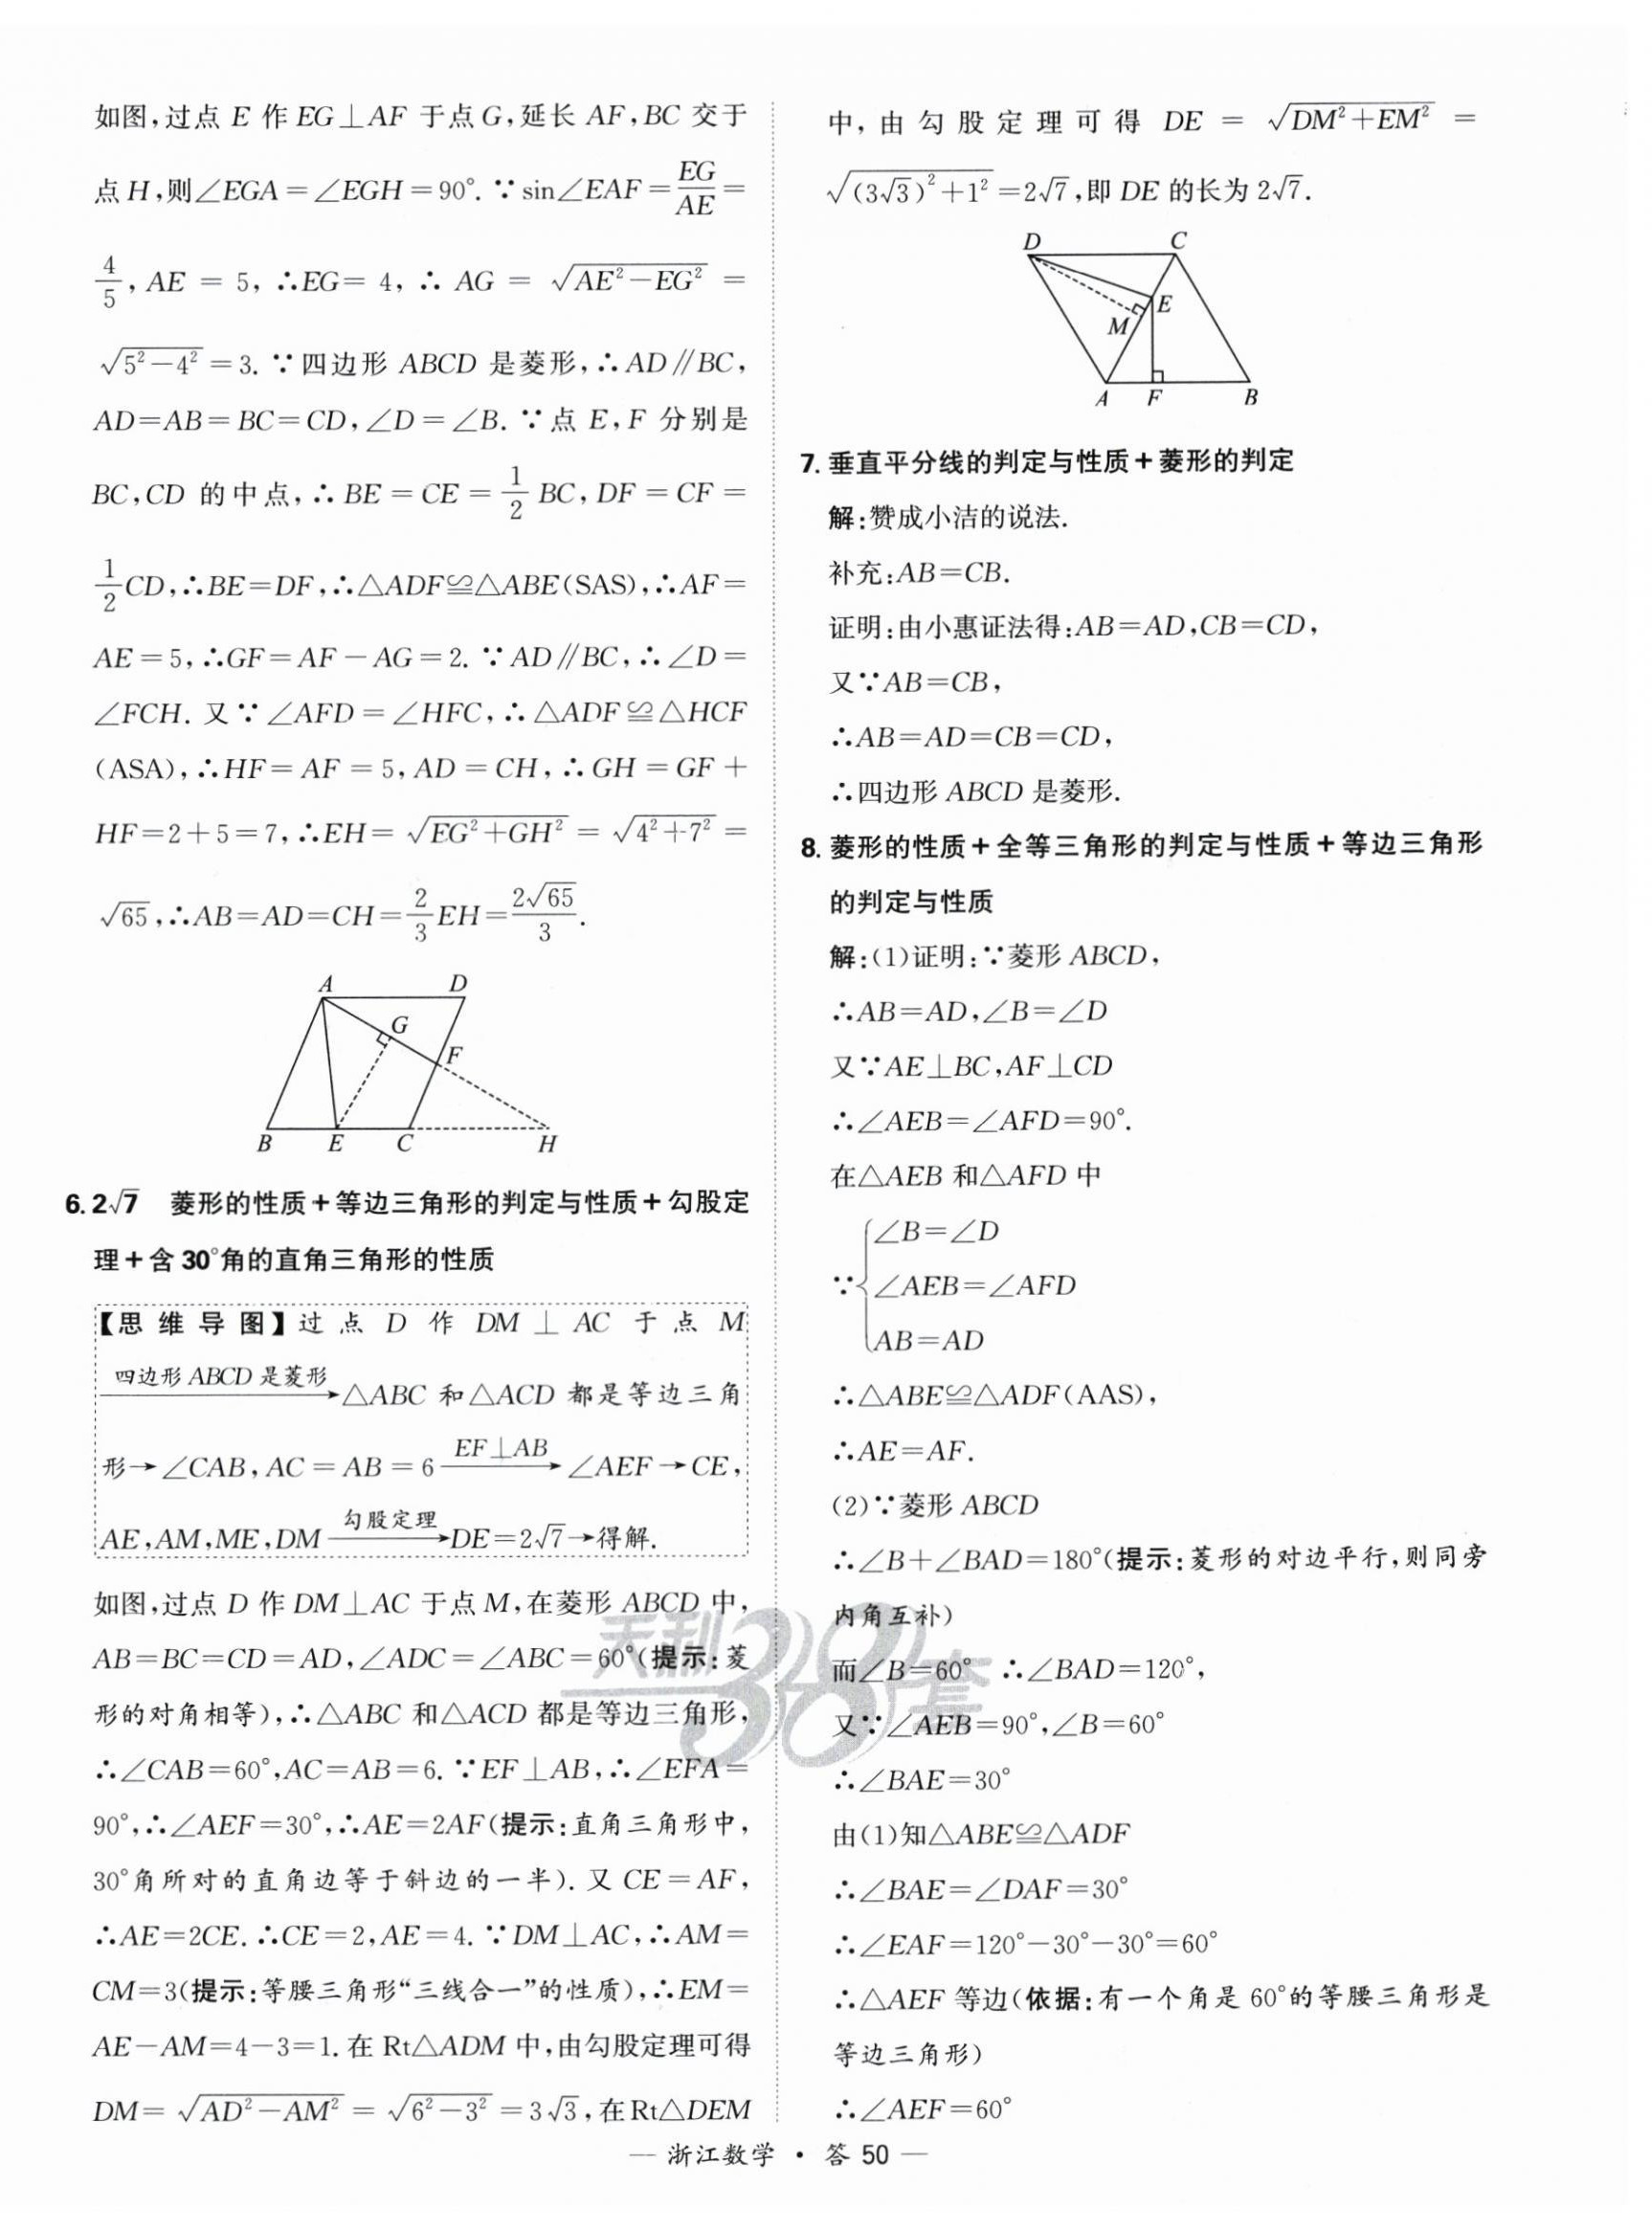 如图,过点 E 作 EG⊥AF 于点 G,延长 AF,BC 交于
点 H,则∠EGA=∠EGH=90°. ∵sin∠EAF=EG/AE=
4/5, AE = 5, ∴EG= 4, ∴ AG = √(AE²-EG²) =
√(5²-4²)=3. ∵四边形 ABCD 是菱形,∴AD∥BC,
AD=AB=BC=CD,∠D=∠B. ∵点 E,F 分别是
BC,CD 的中点,∴BE=CE=1/2 BC,DF=CF=
1/2 CD,∴BE=DF,∴△ADF≌△ABE(SAS),∴AF=
AE=5,∴GF=AF-AG=2. ∵AD∥BC,∴∠D=
∠FCH. 又∵∠AFD=∠HFC,∴△ADF≌△HCF
(ASA),∴HF=AF=5,AD=CH,∴GH=GF+
HF=2+5=7,∴EH=√(EG²+GH²)=√(4²+7²)=
√65,∴AB=AD=CH=2/3 EH=2√65/3.
A D
G
F
B E C H
6. 2√7 菱形的性质+等边三角形的判定与性质+勾股定
理+含30°角的直角三角形的性质
【思维导图】过点 D 作 DM ⊥ AC 于点 M
四边形 ABCD 是菱形→△ABC 和△ACD 都是等边三角
形→∠CAB,AC=AB=6 EF⊥AB→∠AEF→CE,
AE,AM,ME,DM 勾股定理→DE=2√7→得解.
如图,过点 D 作 DM⊥AC 于点 M,在菱形 ABCD 中,
AB=BC=CD=AD,∠ADC=∠ABC=60°(提示:菱
形的对角相等),∴△ABC 和△ACD 都是等边三角形,
∴∠CAB=60°,AC=AB=6. ∵EF⊥AB,∴∠EFA=
90°,∴∠AEF=30°,∴AE=2AF(提示:直角三角形中,
30°角所对的直角边等于斜边的一半). 又 CE=AF,
∴AE=2CE. ∴CE=2,AE=4. ∵DM⊥AC,∴AM=
CM=3(提示:等腰三角形“三线合一”的性质),∴EM=
AE-AM=4-3=1. 在 Rt△ADM 中,由勾股定理可得
DM=√(AD²-AM²)=√(6²-3²)=3√3,在Rt△DEM
中,由勾股定理可得 DE = √(DM²+EM²) =
√((3√3)²+1²)=2√7,即 DE 的长为 2√7.
D C
E
M
A F B
7. 垂直平分线的判定与性质+菱形的判定
解:赞成小洁的说法.
补充:AB=CB.
证明:由小惠证法得:AB=AD,CB=CD,
又∵AB=CB,
∴AB=AD=CB=CD,
∴四边形 ABCD 是菱形.
8. 菱形的性质+全等三角形的判定与性质+等边三角形
的判定与性质
解:(1)证明:∵菱形 ABCD,
∴AB=AD,∠B=∠D
又∵AE⊥BC,AF⊥CD
∴∠AEB=∠AFD=90°.
在△AEB 和△AFD 中
∠B=∠D
∵{∠AEB=∠AFD
AB=AD
∴△ABE≌△ADF(AAS),
∴AE=AF.
(2)∵菱形 ABCD
∴∠B+∠BAD=180°(提示:菱形的对边平行,则同旁
内角互补)
而∠B=60° ∴∠BAD=120°,
又∵∠AEB=90°,∠B=60°
∴∠BAE=30°
由(1)知△ABE≌△ADF
∴∠BAE=∠DAF=30°
∴∠EAF=120°-30°-30°=60°
∴△AEF 等边(依据:有一个角是 60°的等腰三角形是
等边三角形)
∴∠AEF=60°
天利38套
— 浙江数学 · 答 50 —